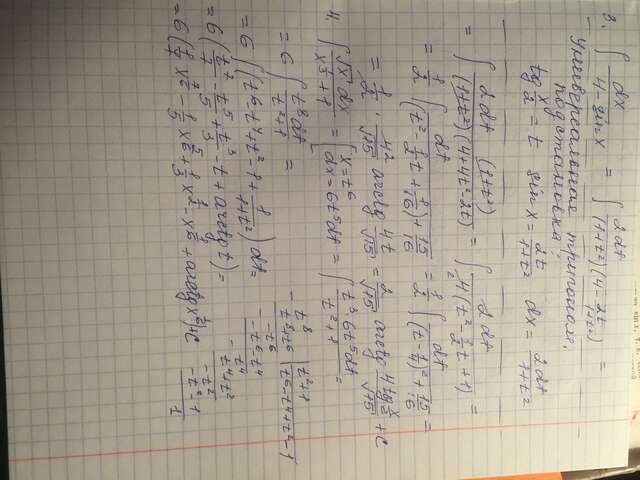 3. ∫ dx/(4 - sin x) = ∫ 2dt/((1+t²)(4 - 2t/(1+t²))) =
Универсальная тригоном.
подстановка:
tg x/2 = t sin x = 2t/(1+t²) dx = 2dt/(1+t²)
= ∫ 2dt (1+t²)/((1+t²)(4+4t²-2t)) = ∫ 2dt/(4(t² - 1/2 t + 1)) =
= 1/2 ∫ dt/((t² - 1/2 t + 1/16) + 15/16) = 1/2 ∫ dt/((t - 1/4)² + 15/16) =
= 1/2 · 4/√15 arctg 4t/√15 = 2/√15 arctg 4 tg x/2/√15 + C
4. ∫ √x dx/(x^3+1) = [x = t6 dx = 6t⁵dt = ∫ t³·6t⁵dt/(t²+1) =
= 6 ∫ t8 dt/(t²+1) =
= 6 ∫ (t6 - t4 + t² - 1 + 1/(1+t²)) dt =
= 6 (t⁷/7 - t⁵/5 + t³/3 - t + arctg t) =
= 6 (1/7 x^7/6 - 1/5 x^5/6 + 1/3 x^1/2 - x^1/6 + arctg x^1/6) + C
t8 | t²+1
t8+t6 | t6-t4+t²-1
-t6
-t6-t4
t4
t4+t²
-t²
-t²-1
1